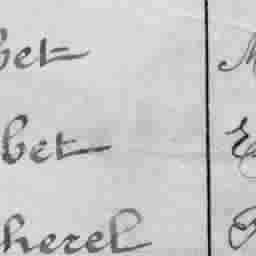 bet M
bet E
herel P